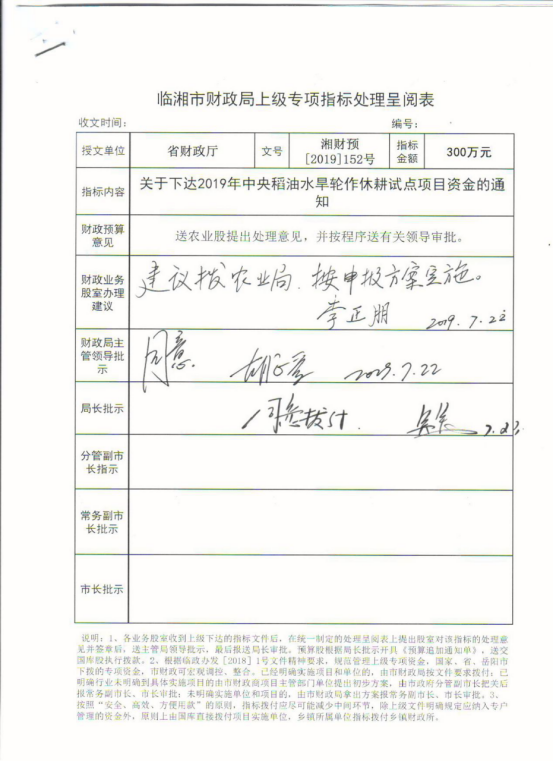 临湘市财政局上级专项指标处理呈阅表
收文时间： 编号：
授文单位 省财政厅 文号 湘财预[2019]152号 指标金额 300万元
指标内容 关于下达2019年中央稻油水旱轮作休耕试点项目资金的通知
财政预算意见 送农业股提出处理意见，并按程序送有关领导审批。
财政业务股室办理建议 建议拨农业局，按申报方案实施。
李正朋 2019.7.22
财政局主管领导批示 同意 2019.7.22
局长批示 同意拨付.
分管副市长指示
常务副市长批示
市长批示
说明：1、各业务股室收到上级下达的指标文件后，在统一制定的处理呈阅表上提出股室对该指标的处理意
见并签章后，送主管局领导批示，最后报送局长审批。预算股根据局长批示开具《预算追加通知单》，送交
国库股执行拨款。2、根据临政办发［2018］1号文件精神要求，规范管理上级专项资金，国家、省、岳阳市
下拨的专项资金，市财政可宏观调控、整合。已经明确实施项目和单位的，由市财政局按文件要求拨付；已
明确行业未明确到具体实施项目的由市财政商项目主管部门单位提出初步方案，由市政府分管副市长把关后
报常务副市长、市长审批；未明确实施单位和项目的，由市财政局拿出方案报常务副市长、市长审批。3、
按照“安全、高效、方便用款”的原则，指标拨付应尽可能减少中间环节，除上级文件明确规定应纳入专户
管理的资金外，原则上由国库直接拨付项目实施单位，乡镇所属单位指标拨付乡镇财政所。